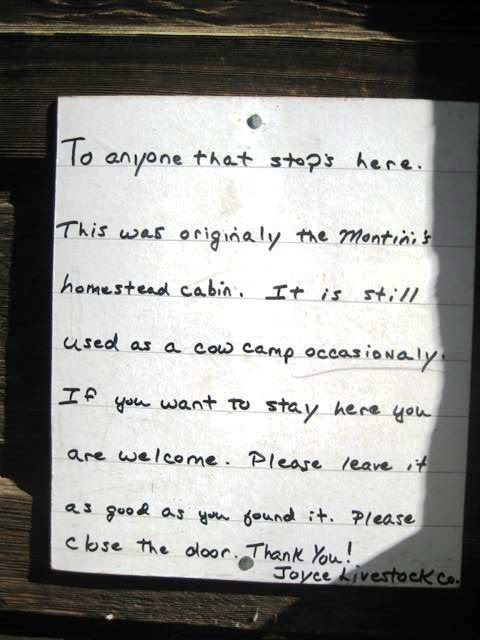 To anyone that stop's here.
This was originaly the Montini's
homestead cabin. It is still
used as a cow camp occasionaly.
If you want to stay here you
are welcome. Please leave it
as good as you found it. Please
close the door. Thank You!
Joyce Livestock Co.